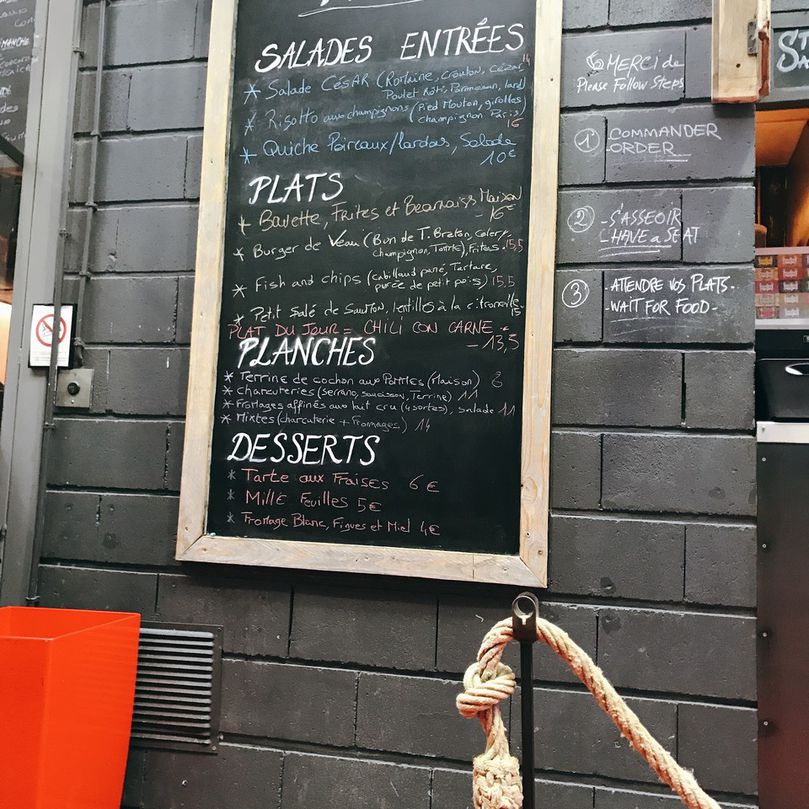 SALADES ENTRÉES
* Salade CÉSAR (Romaine, crouton, cézar 14
Poulet Rôti, Parmesan, lard)
* Risotto aux champignons (Pied Mouton, girolles)
champignon Paris) 16
* Quiche Poireaux/lardos, Salade
10€
PLATS
* Bavette, Frites et Bearnaise Maison
- 16€
* Burger de Veau (Bun de T. Breton, Celeri,
champignon, Tomte), Frites. 15,5
* Fish and chips (cabillaud pané, Tartare,
purée de petit pois) 15,5
* Petit Salé de saumon, lentilles à la citronnelle.
15
PLAT DU JOUR = CHILI CON CARNE
- 13,5
PLANCHES
* Terrine de cochon aux Pommes (Maison) 8
* Charcuteries (Serrano, Saucisson, Terrine) 11
* Fromages affinés aux lait cru (4 sortes), salade 11
* Mixtes (charcuterie + Fromages) 14
DESSERTS
* Tarte aux Fraises 6€
* Mille Feuilles 5€
* Fromage Blanc, Figues et Miel 4€
MERCI de
Please Follow Steps
1 COMMANDER
ORDER
2 - S'ASSEOIR
- HAVE a SEAT
3 - ATTENDRE VOS PLATS -
- WAIT FOR FOOD -